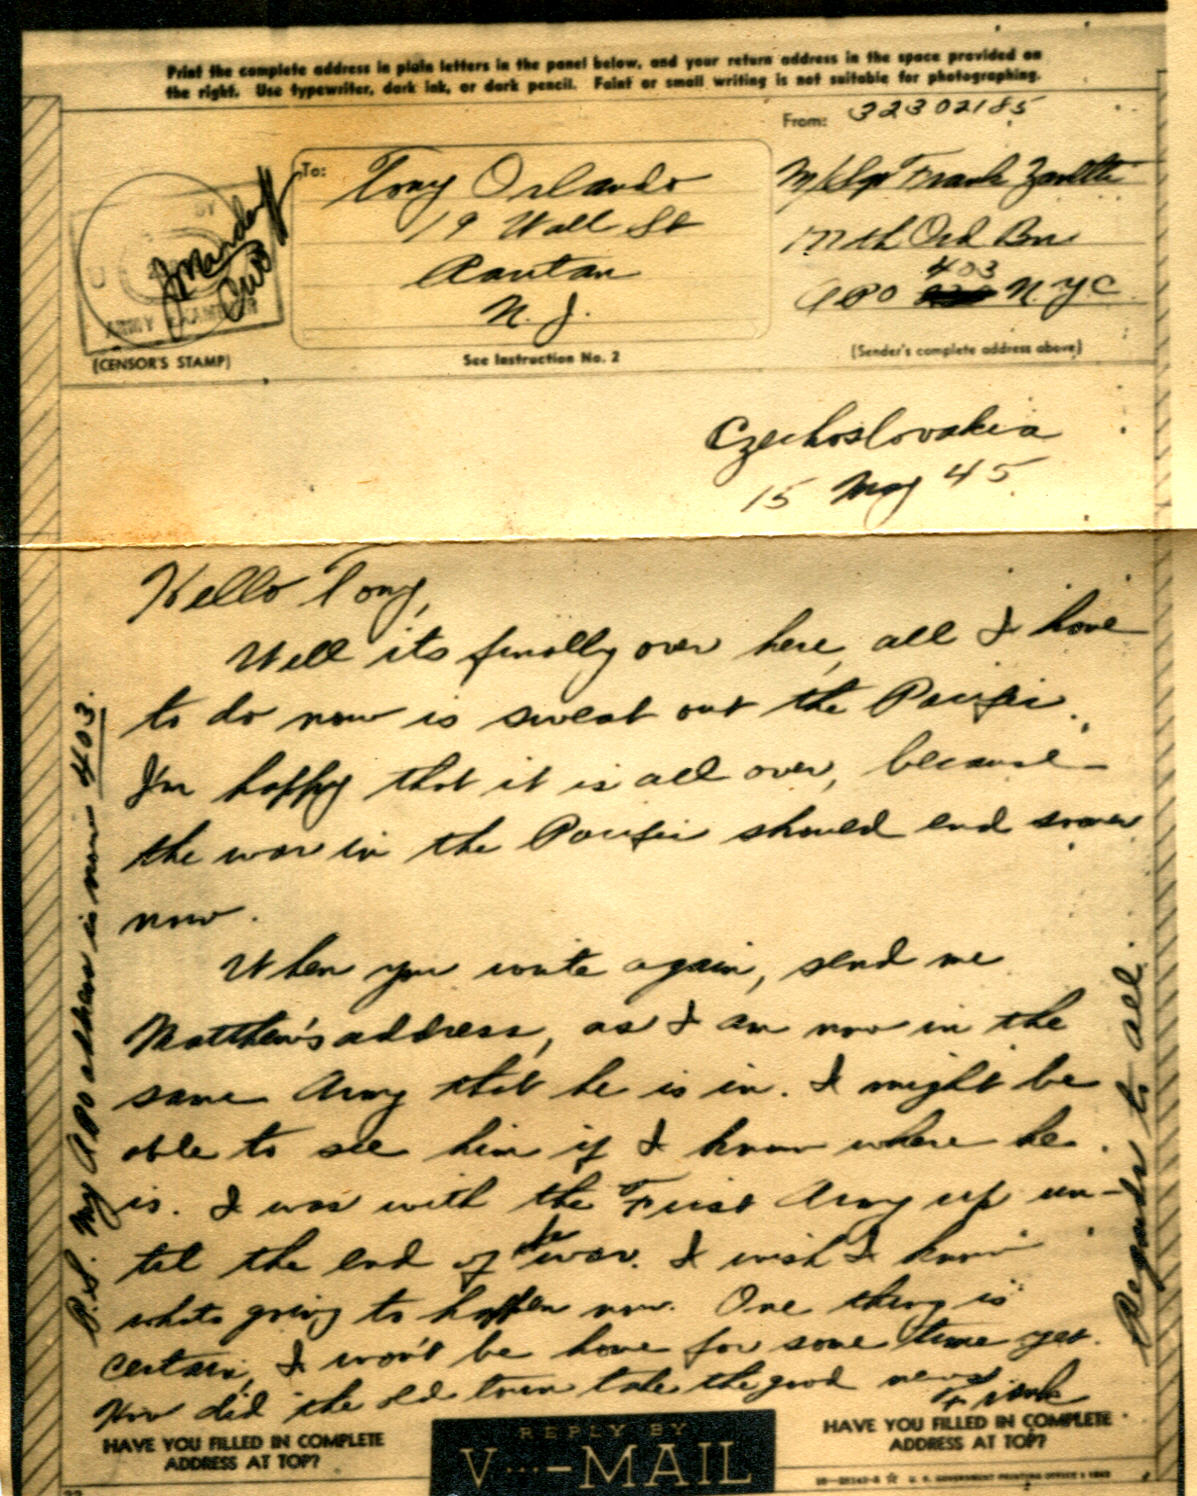 Print the complete address in plain letters in the panel below, and your return address in the space provided on
the right. Use typewriter, dark ink, or dark pencil. Faint or small writing is not suitable for photographing.
From: 32302185
To: Tony Orlando
19 Wall St
Raritan
N. J.
M/Sgt Frank
177th Ord Bn
403
APO N Y C
ARMY EXAMINER
(CENSOR'S STAMP)
See Instruction No. 2
(Sender's complete address above)
Czechoslovakia
15 May 45
Hello Tony,
Well its finally over here, all I have
to do now is sweat out the Pacific.
I'm happy that it is all over, because
the war in the Pacific should end sooner
now.
When you write again, send me
Matthew's address, as I am now in the
same Army that he is in. I might be
able to see him if I know where he
is. I was with the First Army up un-
til the end of the war. I wish I knew
whats going to happen now. One thing is
certain, I won't be home for some time yet.
How did the old town take the good news
Frank
P.S. My APO address is now 403.
Regards to all.
HAVE YOU FILLED IN COMPLETE
ADDRESS AT TOP?
REPLY BY
V···—MAIL
HAVE YOU FILLED IN COMPLETE
ADDRESS AT TOP?
U. S. GOVERNMENT PRINTING OFFICE